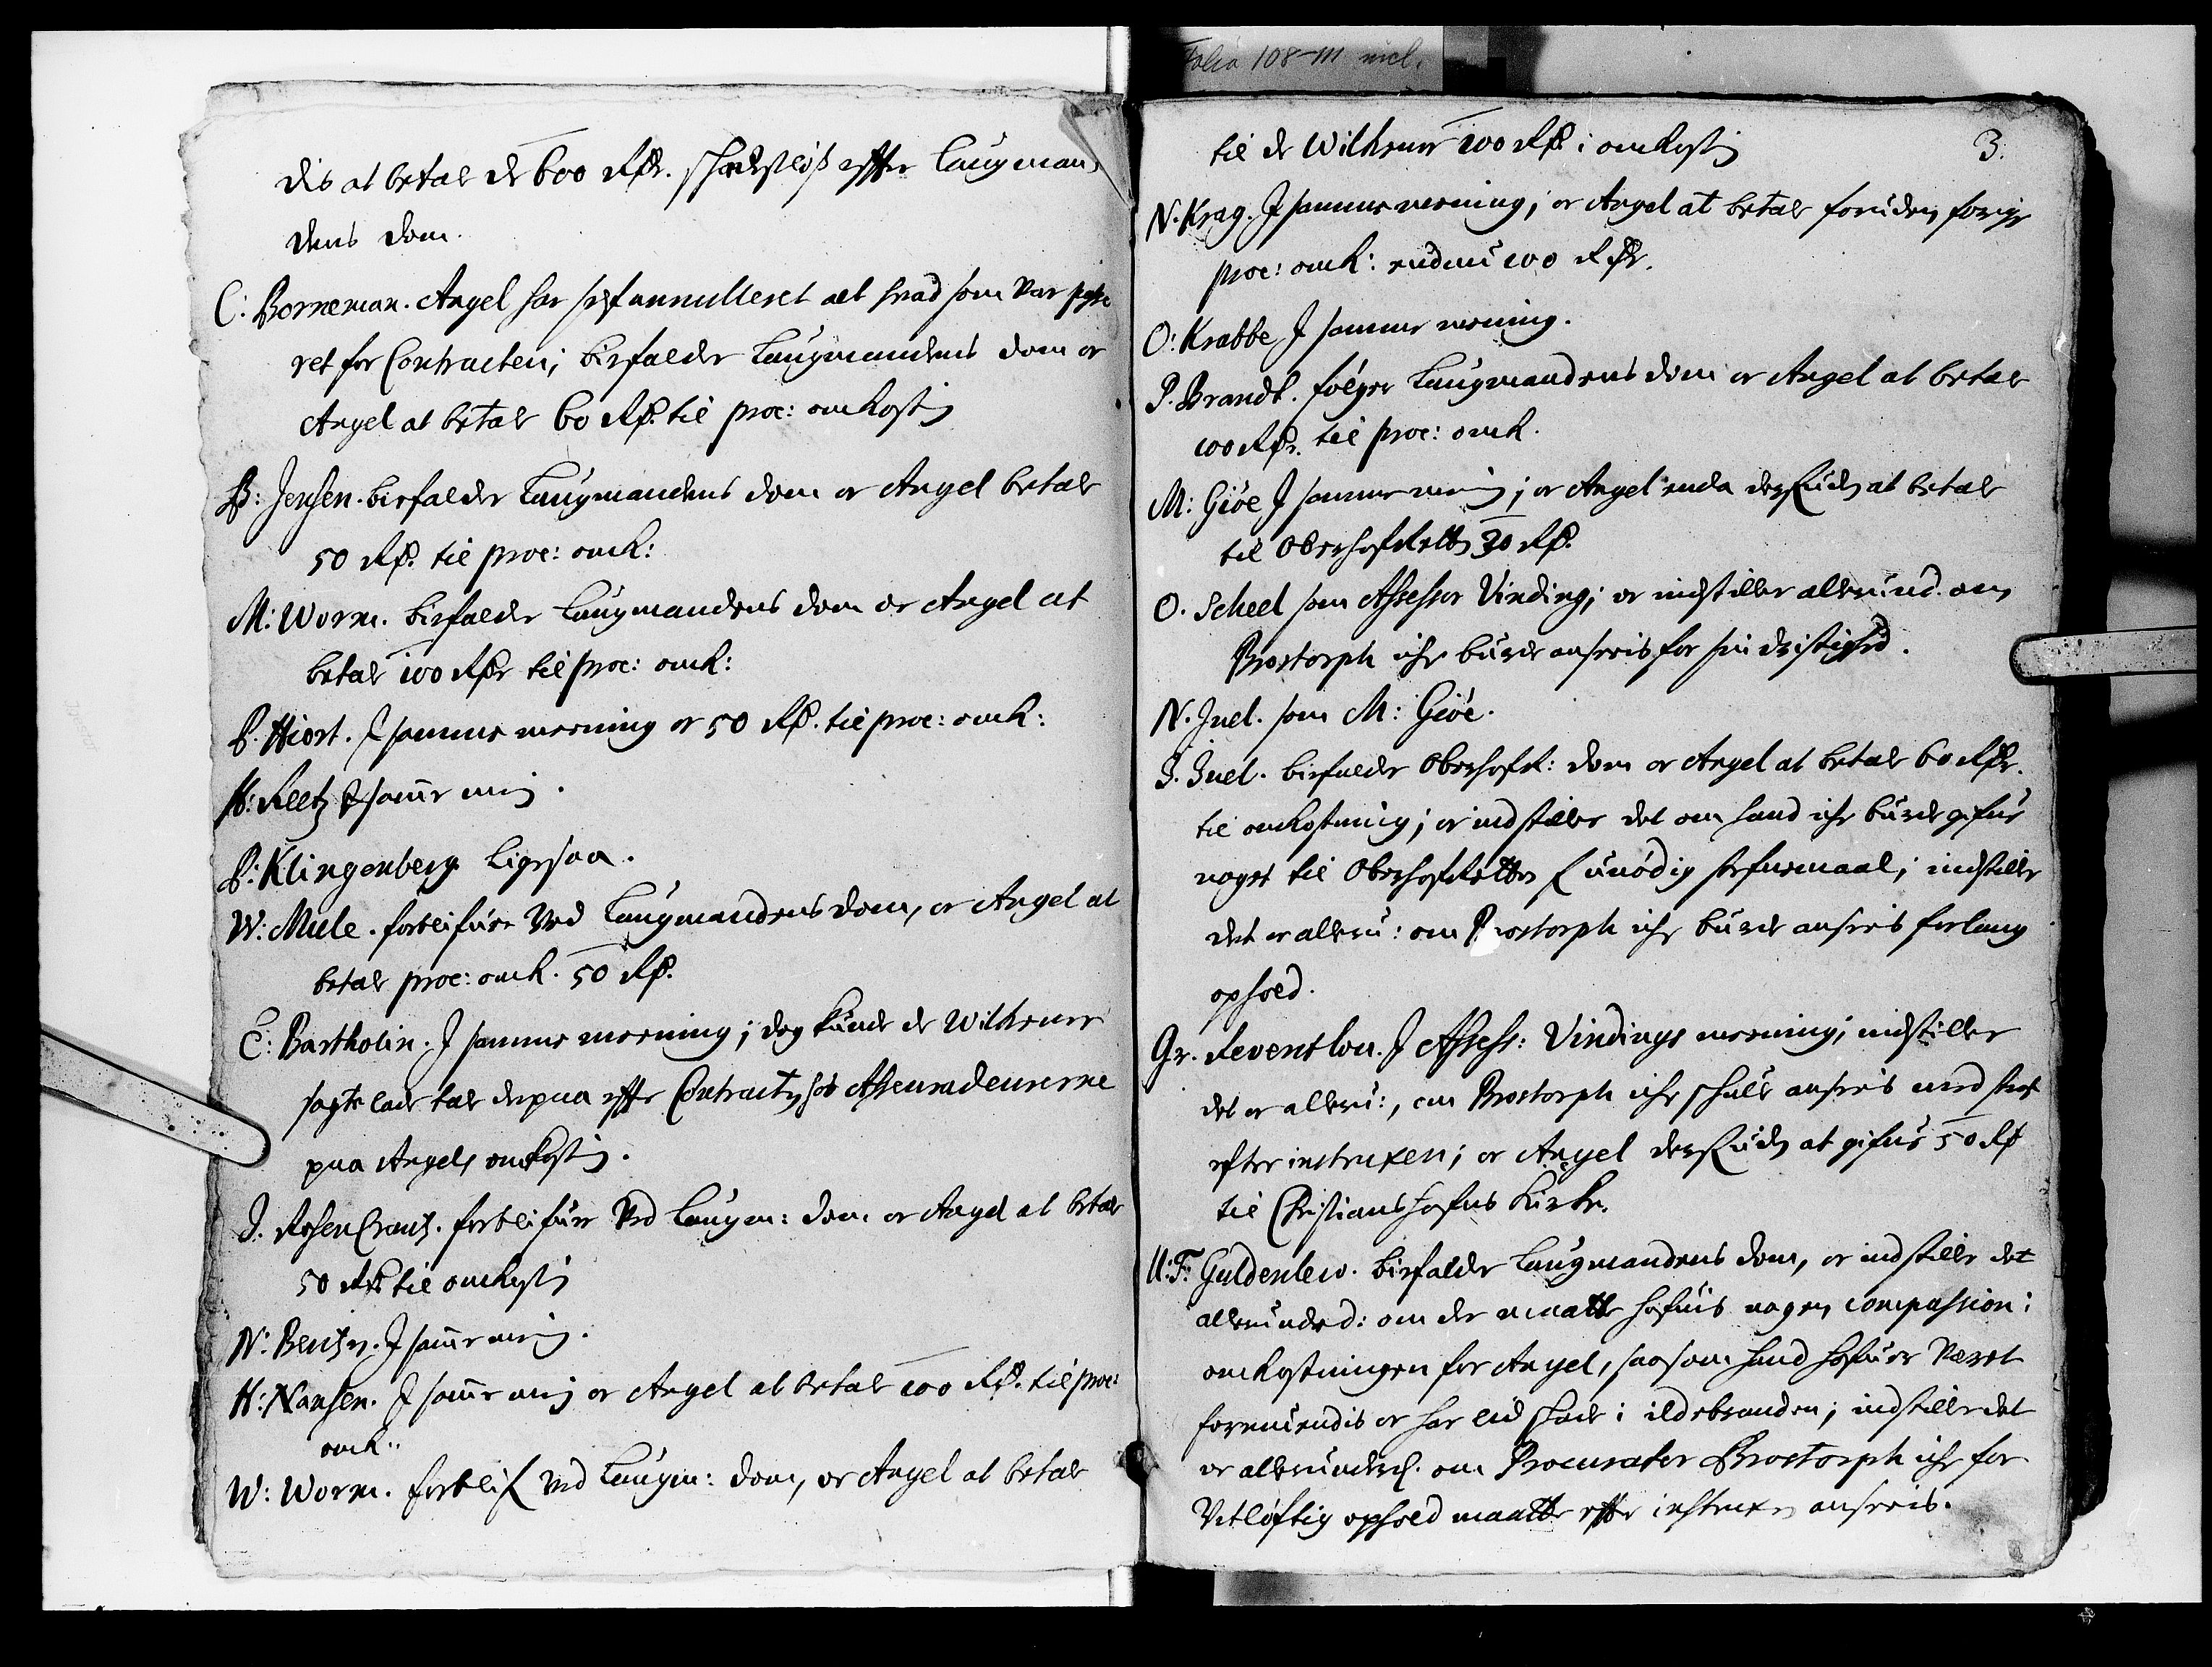 Folia 108-111 incl.
dis at betale de 600 Rdr. skadesløs effter Laugman-
dens dom.
C: Borneman. Angel har self annulleret alt hvad som var
ret for Contracten; biefalder Laugmandens dom oc
Angel at betale 60 Rd. til proc: omkostn
B: Jensen. biefalder Laugmandens dom oc Angel betale
50 Rd. til proc: omk:
M: Worm. biefalder Laugmandens dom oc Angel at
betale 100 Rdr til proc: omk:
P. Hiort. I samme meening oc 50 Rd. til proc: omk:
H: Reetz I samme men.
P: Klingenberg ligesaa.
W: Mule. forblifuer ved Laugmandens dom, oc Angel at
betale proc: omk. 50 Rd.
C: Bartholin. I samme meening; dog kunde de Wilhrner
søgte lade tale derpaa effter Contracten hos Asseuradeurerne
paa Angels omkostn.
J. Rosencrantz. forblifuer ved Laugm: dom oc Angel at betale
50 Rdr til omkostn
N: Bentzn. I samme men.
H: Nansen. I samme men oc Angel at betale 100 Rd. til proc:
omk:
W: Worm. forblif ved Laugm: dom, oc Angel at betale
3.
til de Wilhrner 100 Rd i omkostn
N. Krag. I samme meening, oc Angel at betale foruden forige
proc: omk: endnu 100 Rdr.
O: Krabbe I samme meening.
P. Brandt. følger Laugmandens dom oc Angel at betale
100 Rdr. til proc: omk.
M: Giøe I samme men; oc Angel enda desuden at betale
til Oberhofrettn 30 Rd.
O. Scheel som Assessor Vinding; oc indstiller allerund. om
Brostorph iche burde ansees for sin dristighed.
N. Juel. som M: Giøe.
J. Juel. biefalder Oberhofr: dom oc Angel at betale 60 Rdr.
til omkostning; oc indstiller det om hand iche burde gifue
noget til Oberhofretten f unødig stefnemaal; indstiller
det oc alleru: om Brostorph iche burde ansees for lang
ophold.
Gr. Reventlou. I Assess: Vindings meening; indstiller
det oc alleru:, om Brostorph iche skulle ansees med straf
efter instruxen; oc Angel desuden at gifue 50 Rd
til Christianshafns Kirke.
U: F: Guldenlew. biefalder Laugmandens dom, oc indstiller det
allerunderd: om der maatte hafuis nogen compassion i
omkostningen for Angel, saasom hand hafuer været
formuendis oc har lid skade i ildebranden; indstiller det
oc allerunderd. om Procurator Brostorph iche for
vitløftig ophold maatte effter instruxen ansees.